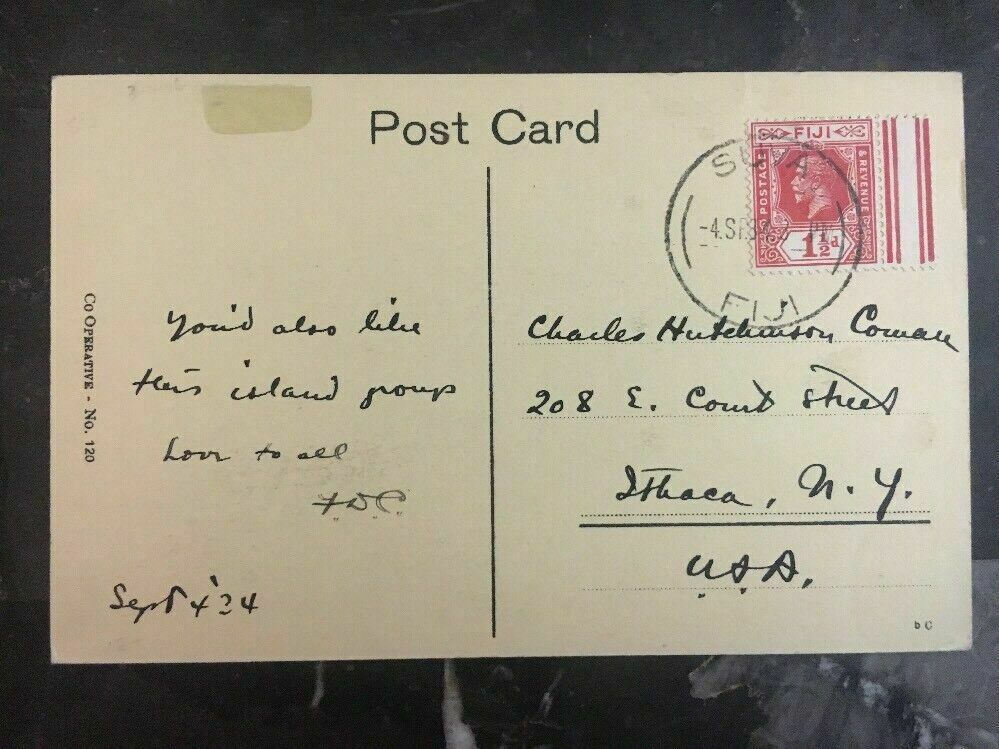 Post Card
FIJI
POSTAGE & REVENUE
1½d
SUVA
FIJI
Co Operative - No. 120
You'd also like
this island group
Love to all
F.D.C.
Sept 4 '34
Charles Hutchinson Coman
208 E. Court Street
Ithaca, N.Y.
U.S.A.